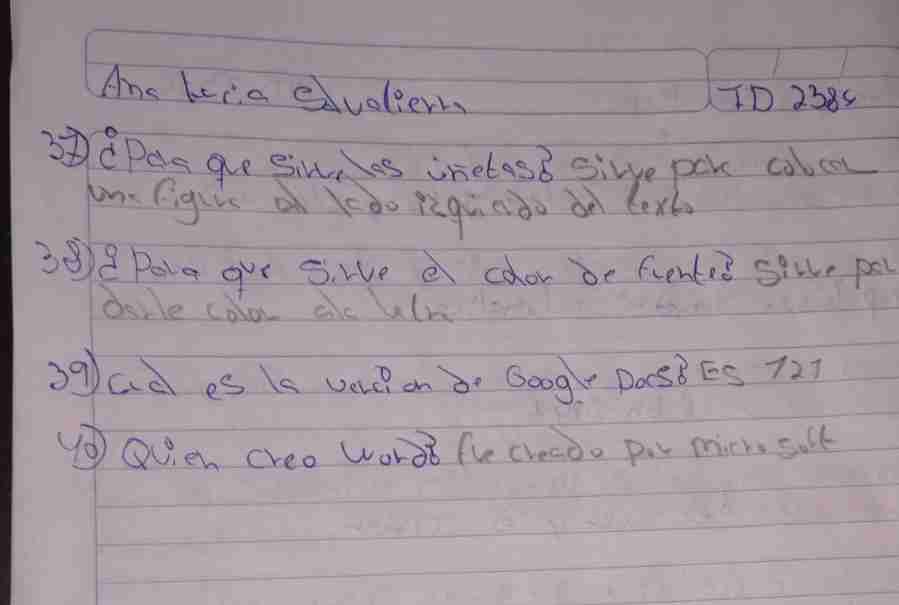 Ana Lucia Gualiem TD 2384
37) ¿Para que sirve las viñetas? Sirve para colocar
una figura al lado izquierdo del texto
38) ¿Para que sirve el color de fuente? Sirve par
darle color ala letra
39) cual es la version de Google Docs? ES 121
40) Quien creo word? fue creado por microsoft